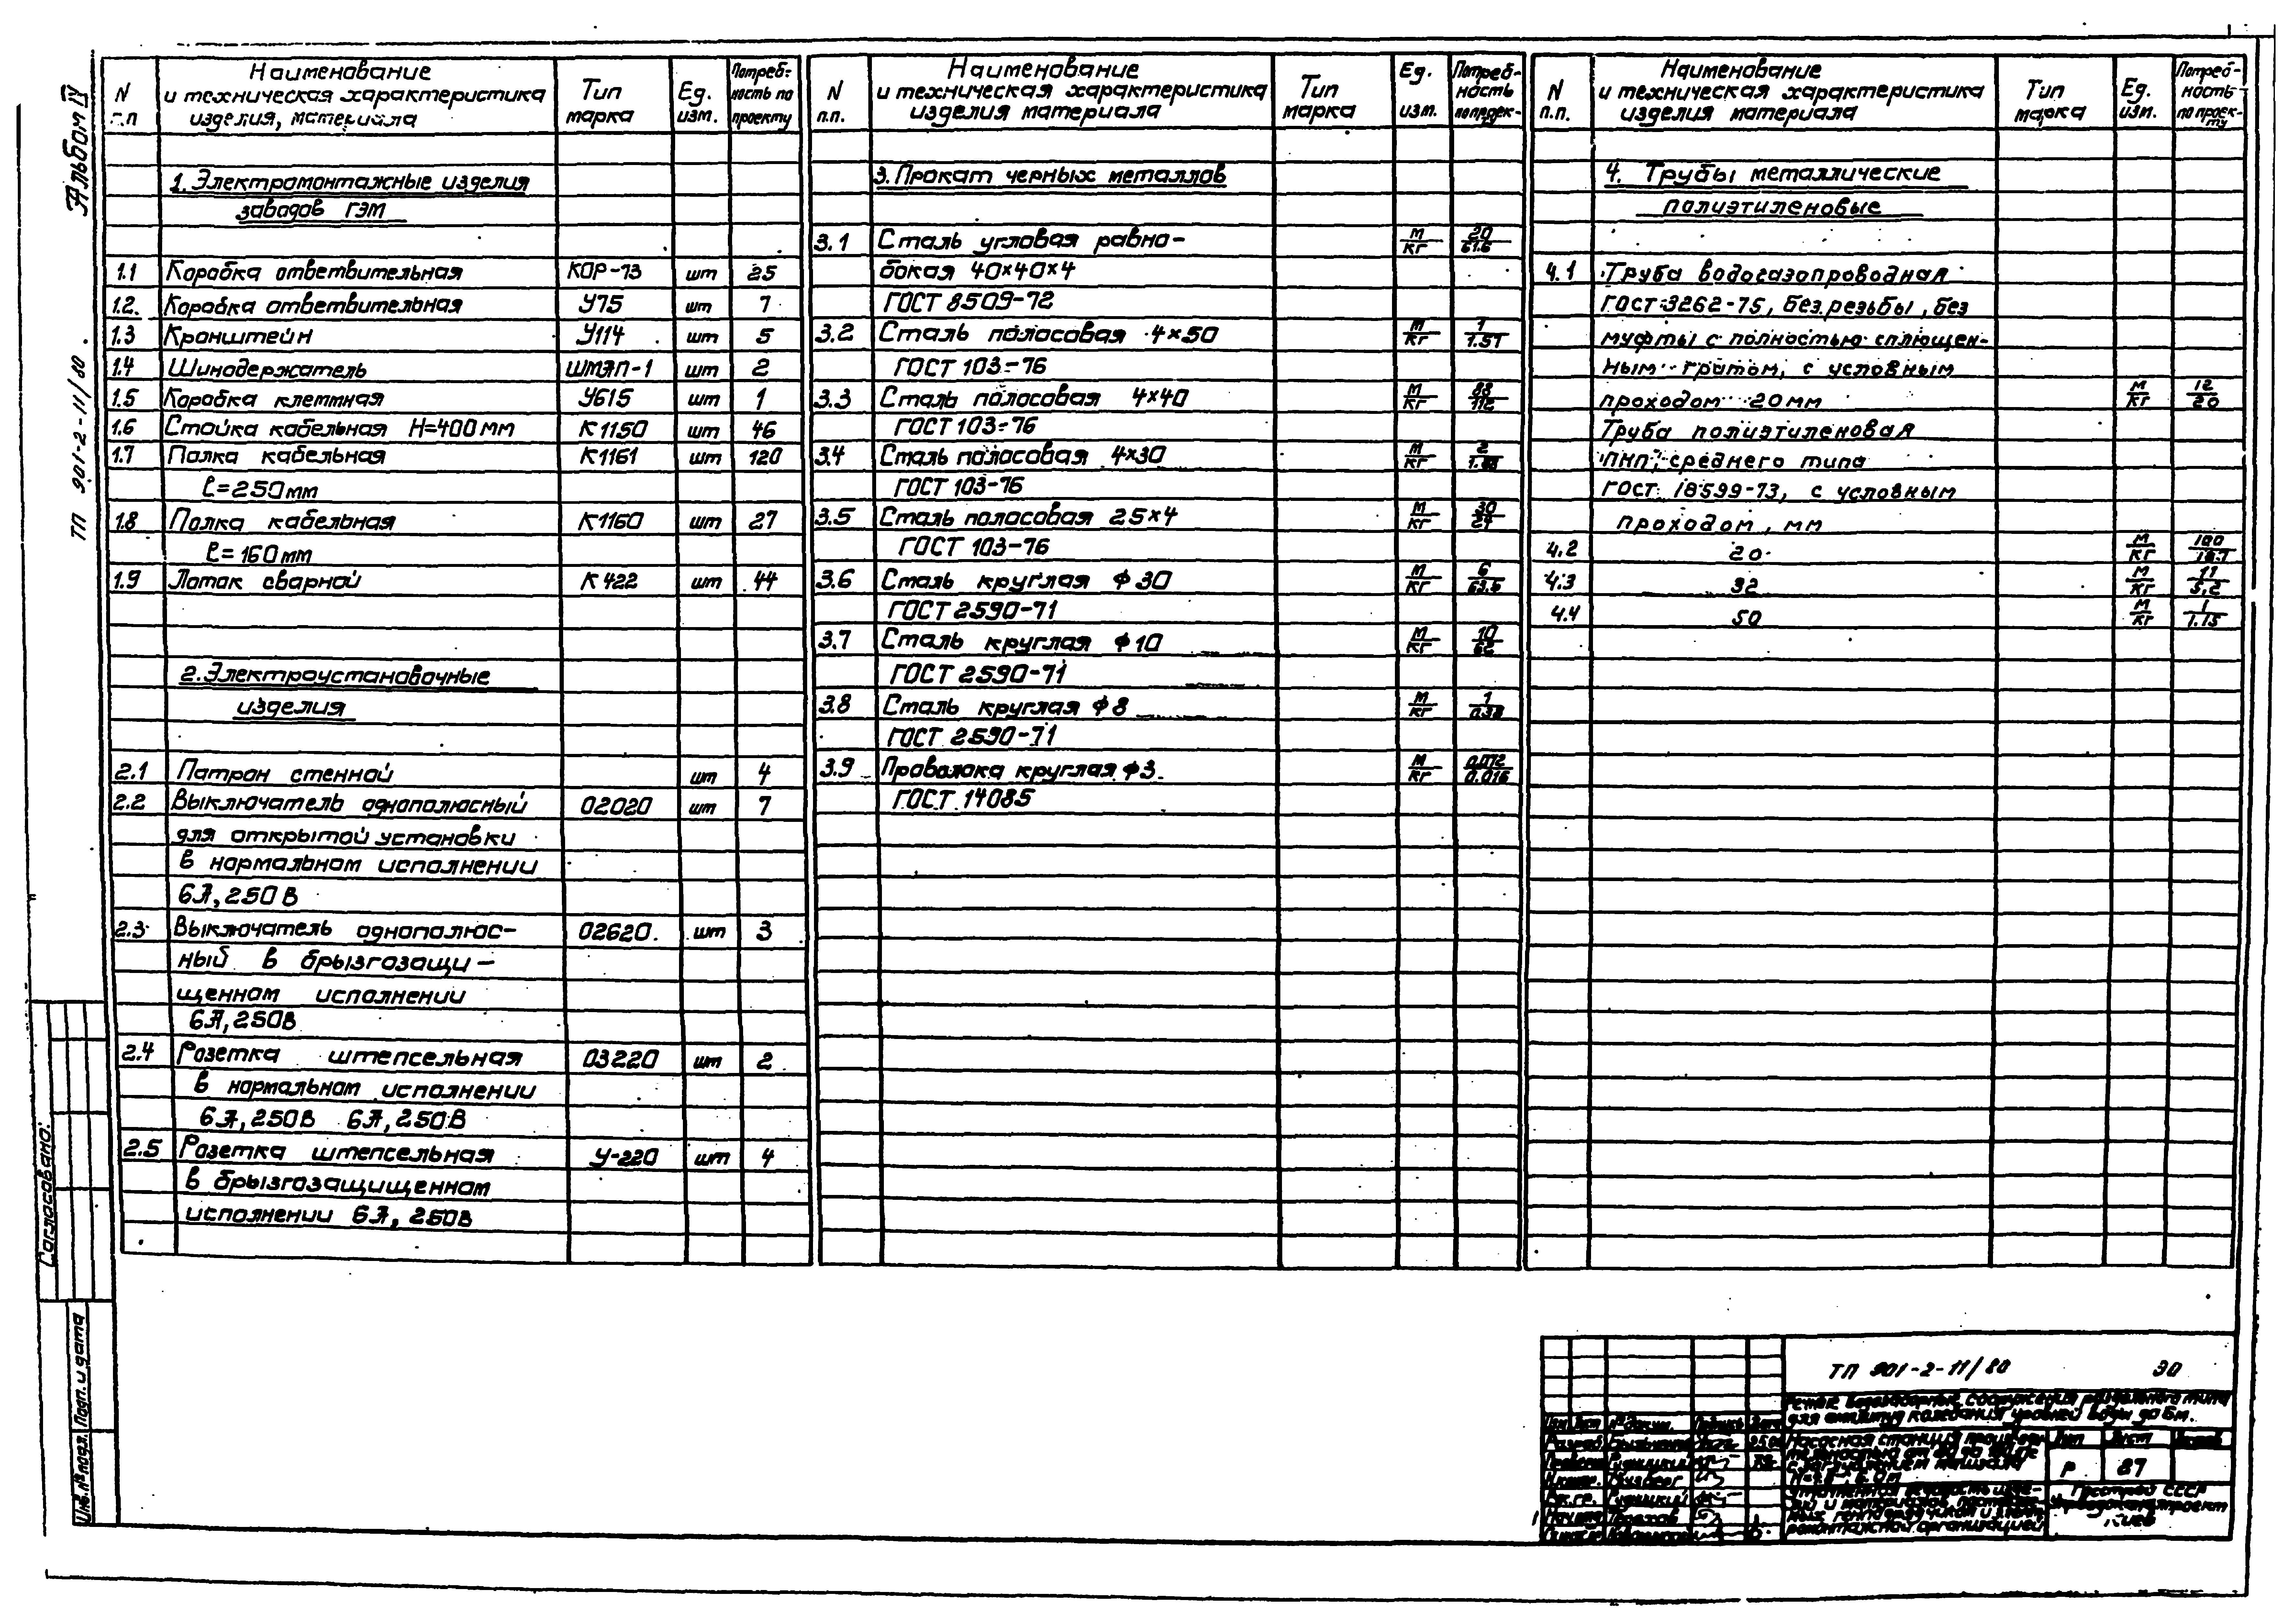 Альбом IV
ТП 901-2-11/80
N п.п
Наименование
и техническая характеристика
изделия, материала
Тип марка
Ед. изм.
Потреб-
ность по
проекту
1. Электромонтажные изделия
заводов ГЭМ
1.1 Коробка ответвительная КОР-73 шт 25
1.2. Коробка ответвительная У75 шт 7
1.3 Кронштейн У114 шт 5
1.4 Шинодержатель шт 2
1.5 Коробка клеммная У615 шт 1
1.6 Стойка кабельная H=400мм К1150 шт 46
1.7 Полка кабельная К1161 шт 120
ℓ=250мм
1.8 Полка кабельная К1160 шт 27
ℓ=160мм
1.9 Лоток сварной К422 шт 44
2. Электроустановочные
изделия
2.1 Патрон стенной шт 4
2.2 Выключатель однополюсный 02020 шт 7
для открытой установки
в нормальном исполнении
6А, 250В
2.3 Выключатель однополюс- 02620. шт 3
ный в брызгозащи-
щенном исполнении
6А, 250В
2.4 Розетка штепсельная 03220 шт 2
в нормальном исполнении
6А, 250В 6А, 250В
2.5 Розетка штепсельная У-220 шт 4
в брызгозащищенном
исполнении 6А, 250В
N п.п.
Наименование
и техническая характеристика
изделия материала
Тип марка
Ед. изм.
Потреб-
ность
по проек-
3. Прокат черных металлов
3.1 Сталь угловая равно- м/кг 20/61.6
бокая 40×40×4
ГОСТ 8509-72
3.2 Сталь полосовая 4×50 м/кг 1/1.57
ГОСТ 103-76
3.3 Сталь полосовая 4×40 м/кг 88/112
ГОСТ 103-76
3.4 Сталь полосовая 4×30 м/кг 2/1.88
ГОСТ 103-76
3.5 Сталь полосовая 25×4 м/кг 30/24
ГОСТ 103-76
3.6 Сталь круглая ϕ30 м/кг 6/
ГОСТ 2590-71
3.7 Сталь круглая ϕ10 м/кг 10/62
ГОСТ 2590-71
3.8 Сталь круглая ϕ8 м/кг 1/
ГОСТ 2590-71
3.9 Проволока круглая ϕ3 м/кг 0.072/0.016
ГОСТ 14085
N п.п.
Наименование
и техническая характеристика
изделия материала
Тип марка
Ед. изм.
Потреб-
ность
по проек-
ту
4. Трубы металлические
полиэтиленовые
4.1 Труба водогазопроводная
ГОСТ 3262-75, без резьбы, без
муфты с полностью сплющен-
ным гратом, с условным
проходом 20мм м/кг 12/20
Труба полиэтиленовая
ПНП, среднего типа
ГОСТ 18599-73, с условным
проходом, мм
4.2 20 м/кг 100/
4.3 32 м/кг 11/5,2
4.4 50 м/кг 1/1.15
Согласовано:
Подп. и дата
Инв. № подл.
ТП 901-2-11/80 ЭО
водозаборные сооружения раздельного типа
для амплитуд колебания уровней воды до 6м.
Насосная станция
Лист
Р 87
Госстрой СССР
Укрводоканалпроект
Киев